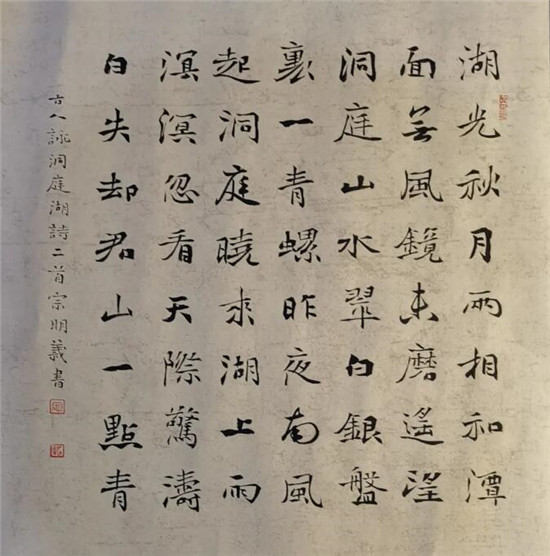 湖光秋月兩相和潭
面無風鏡未磨遙望
洞庭山水翠白銀盤
裏一青螺昨夜南風
起洞庭曉來湖上雨
溟溟忽看天際驚濤
白失却君山一點青
古人詠洞庭湖詩二首宗明義書